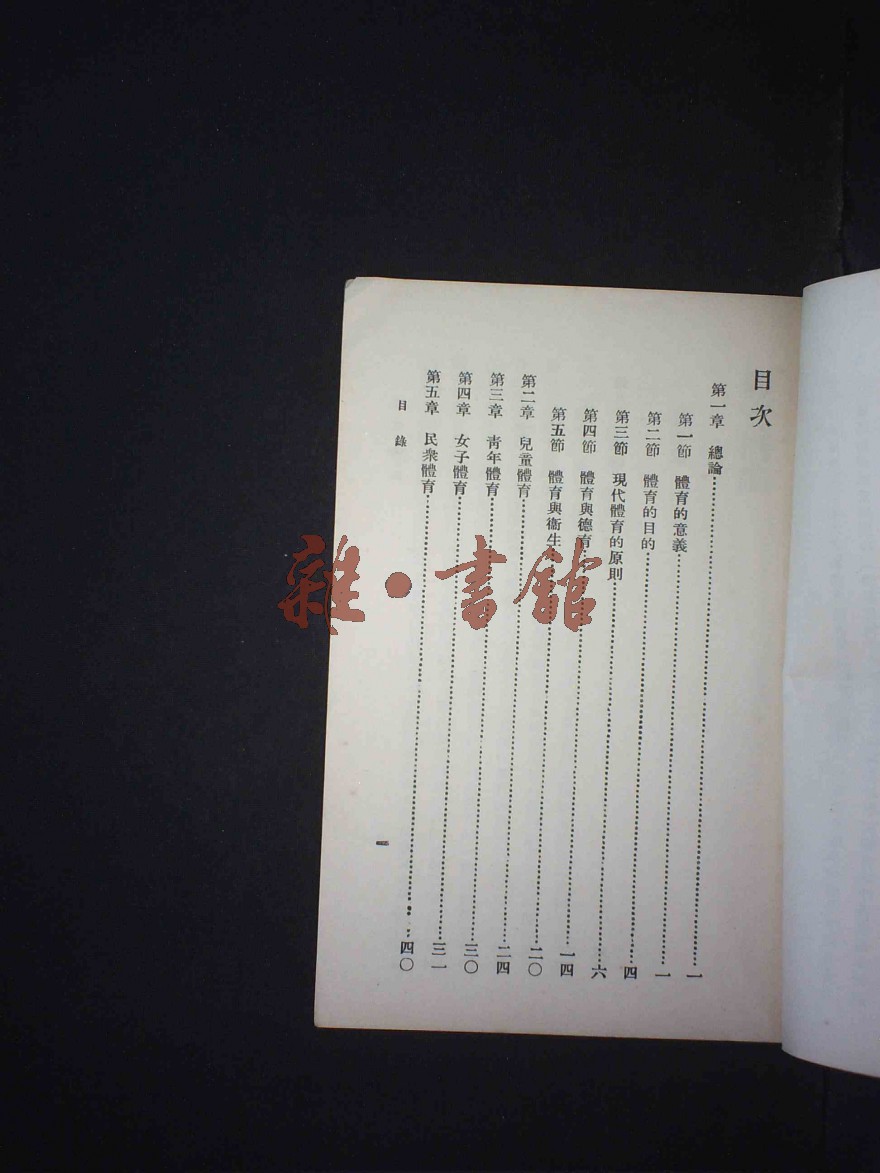 目次
第一章　總論……一
第一節　體育的意義……一
第二節　體育的目的……四
第三節　現代體育的原則……六
第四節　體育與德育……一四
第五節　體育與衞生……二〇
第二章　兒童體育……二四
第三章　靑年體育……三〇
第四章　女子體育……三一
第五章　民衆體育……四〇
目錄
一
雜·書館